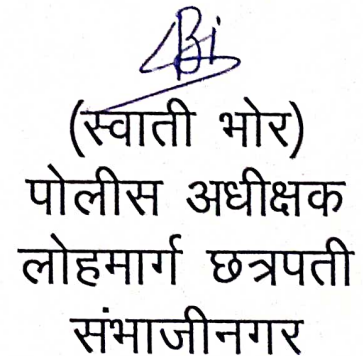 (स्वाती भोर)
पोलीस अधीक्षक
लोहमार्ग छत्रपती
संभाजीनगर